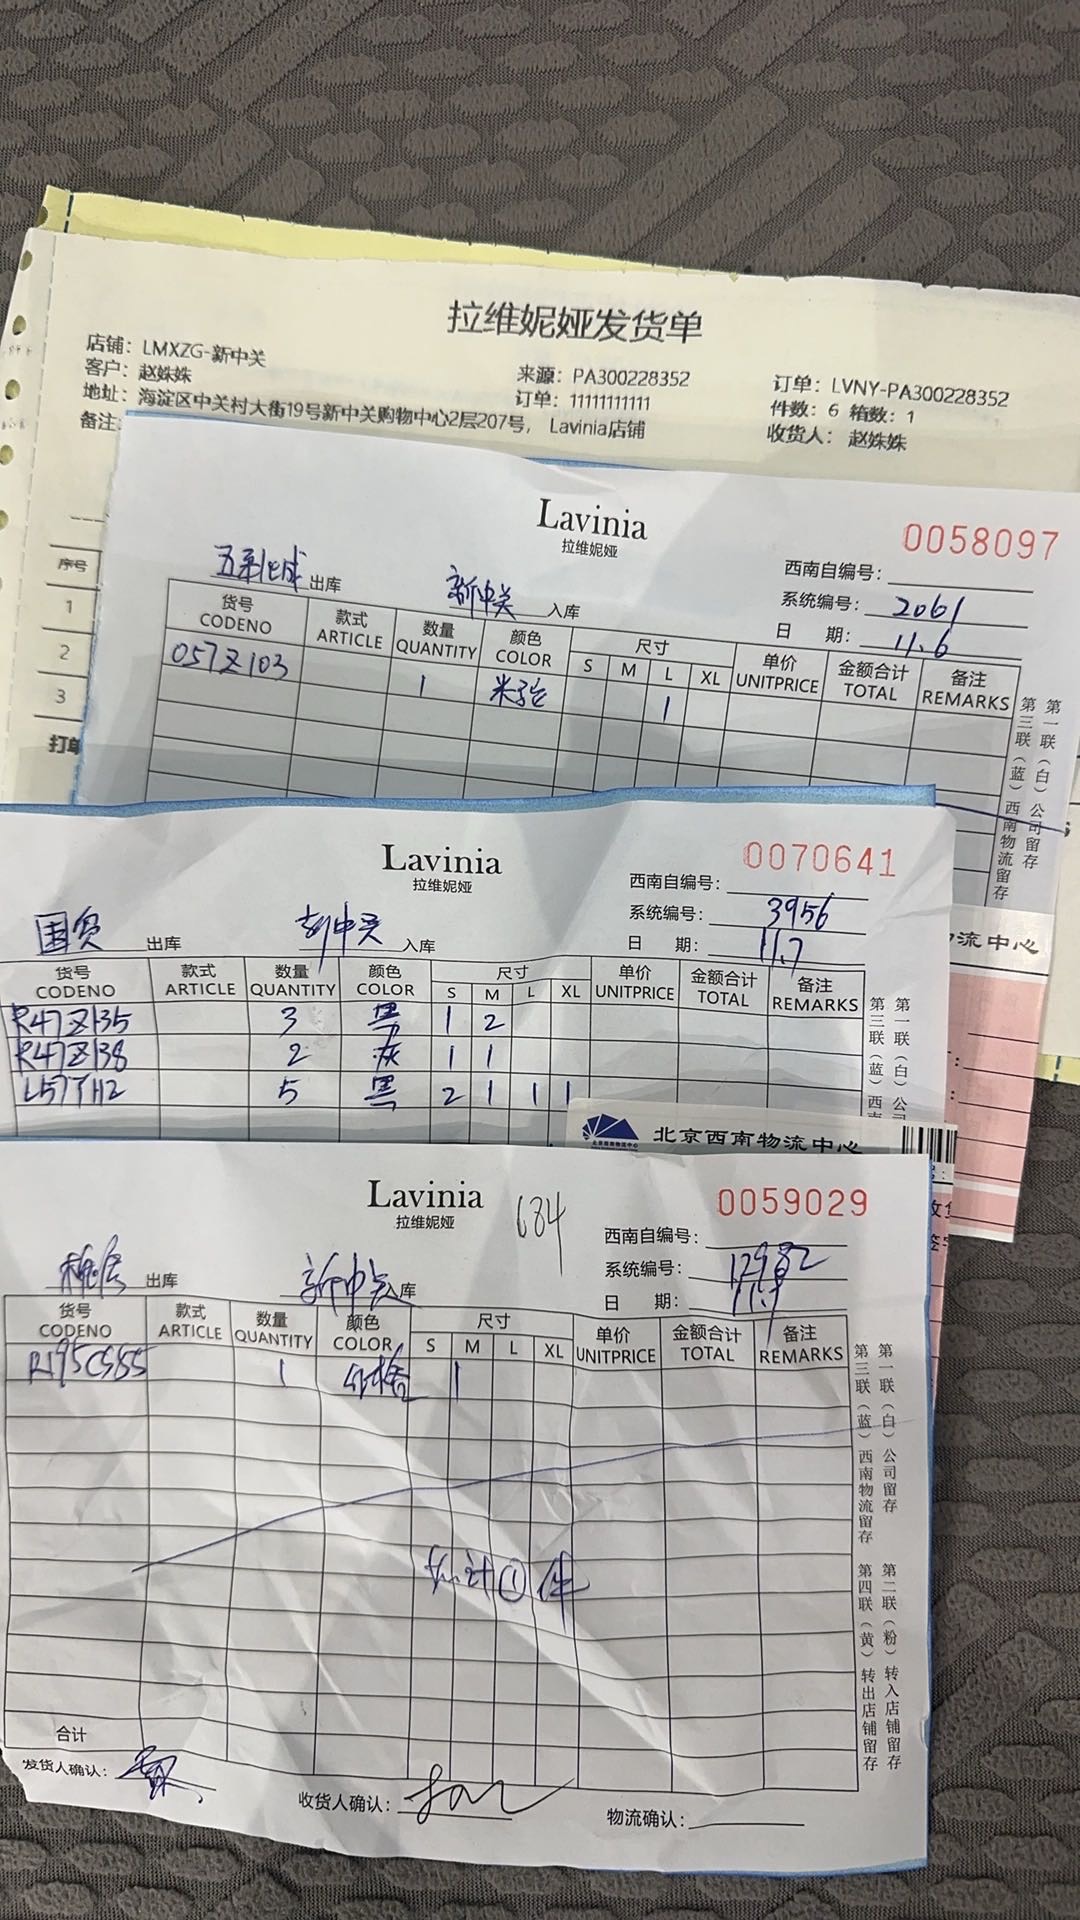 拉维妮娅发货单
店铺：LMXZG-新中关
客户：赵姝姝
来源：PA300228352
订单：LVNY-PA300228352
地址：海淀区中关村大街19号新中关购物中心2层207号， Lavinia店铺
订单：11111111111
件数：6 箱数：1
备注:
收货人：赵姝姝
序号
1
2
3
打单
Lavinia
拉维妮娅
0058097
西南自编号:
出库
新中关 入库
系统编号: 2061
日 期: 11.6
货号 款式 数量 颜色 尺寸 单价 金额合计 备注
CODENO ARTICLE QUANTITY COLOR S M L XL UNITPRICE TOTAL REMARKS
057Z103 1 1
第一联（白）公司留存
第三联（蓝）西南物流留存
流中心
Lavinia
拉维妮娅
0070641
西南自编号:
国贸 出库
新中关 入库
系统编号: 3956
日 期: 11.7
货号 款式 数量 颜色 尺寸 单价 金额合计 备注
CODENO ARTICLE QUANTITY COLOR S M L XL UNITPRICE TOTAL REMARKS
R47Z135 3 黑 1 2
R47Z138 2 灰 1 1
L57TH2 5 黑 2 1 1 1
第一联（白）公
第三联（蓝）西
北京西南物流中心
Lavinia
拉维妮娅
684
0059029
西南自编号:
出库
新中关 入库
系统编号:
日 期:
货号 款式 数量 颜色 尺寸 单价 金额合计 备注
CODENO ARTICLE QUANTITY COLOR S M L XL UNITPRICE TOTAL REMARKS
R195CS85 1 1
共计①件
第一联（白）公司留存
第三联（蓝）西南物流留存
第二联（粉）转入店铺留存
第四联（黄）转出店铺留存
合计
发货人确认:
收货人确认:
物流确认: